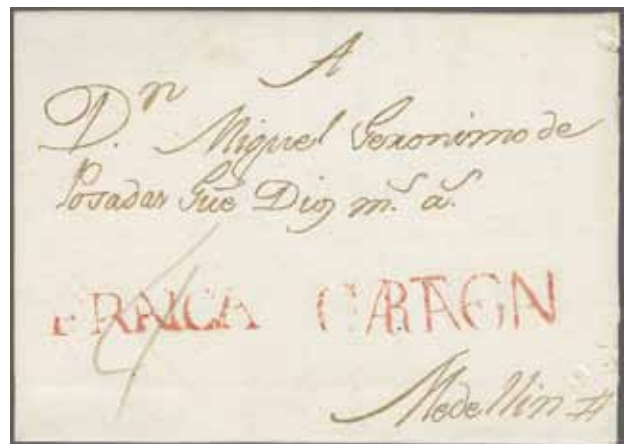 A
Dn. Miguel Geronimo de
Posadas Gue Dios ms. as.
FRANCA CARTAGN
4
Medellin